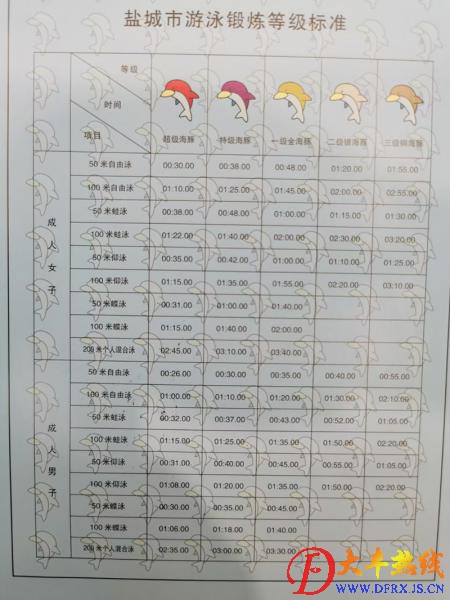 盐城市游泳锻炼等级标准
等级
时间
项目
超级海豚 特级海豚 一级金海豚 二级银海豚 三级铜海豚
成人女子
50 米自由泳 00:30.00 00:38.00 00:48.00 01:20.00 01:55.00
100 米自由泳 01:10.00 01:25.00 01:45.00 02:00.00 02:55.00
50 米蛙泳 00:38.00 00:48.00 01:00.00 01:15.00 01:30.00
100 米蛙泳 01:22.00 01:40.00 02:00.00 02:30.00 03:20.00
50 米仰泳 00:35.00 00:42.00 01:00.00 01:10.00 01:25.00
100 米仰泳 01:15.00 01:35.00 01:55.00 02:20.00 03:10.00
50 米蝶泳 00:31.00 01:00.00 01:40.00
100 米蝶泳 01:15.00 01:40.00 02:00.00
200 米个人混合泳 02:45.00 03:10.00 03:40.00
成人男子
50 米自由泳 00:26.00 00:30.00 00:35.00 00:40.00 00:55.00
100 米自由泳 01:00.00 01:10.00 01:20.00 01:30.00 02:10.00
50 米蛙泳 00:32.00 00:37.00 00:43.00 00:52.00 01:05.00
100 米蛙泳 01:15.00 01:25.00 01:35.00 01:50.00 02:20.00
50 米仰泳 00:31.00 00:40.00 00:45.00 00:55.00 01:05.00
100 米仰泳 01:08.00 01:20.00 01:35.00 01:50.00 02:20.00
50 米蝶泳 00:30.00 00:35.00 00:45.00
100 米蝶泳 01:06.00 01:18.00 01:40.00
200 米个人混合泳 02:35.00 03:00.00 03:30.00
大丰热线
WWW.DFRX.JS.CN